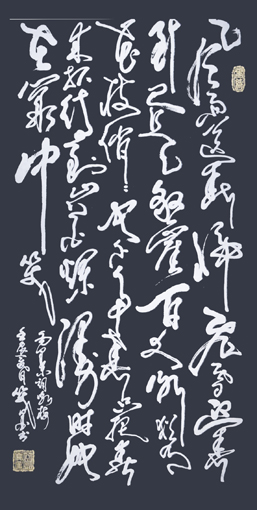 风雨送春归飞雪迎春
到已是悬崖百丈冰犹有
花枝俏俏也不争春只把春
来报待到山花烂漫时她
在叢中笑
毛泽东词咏梅